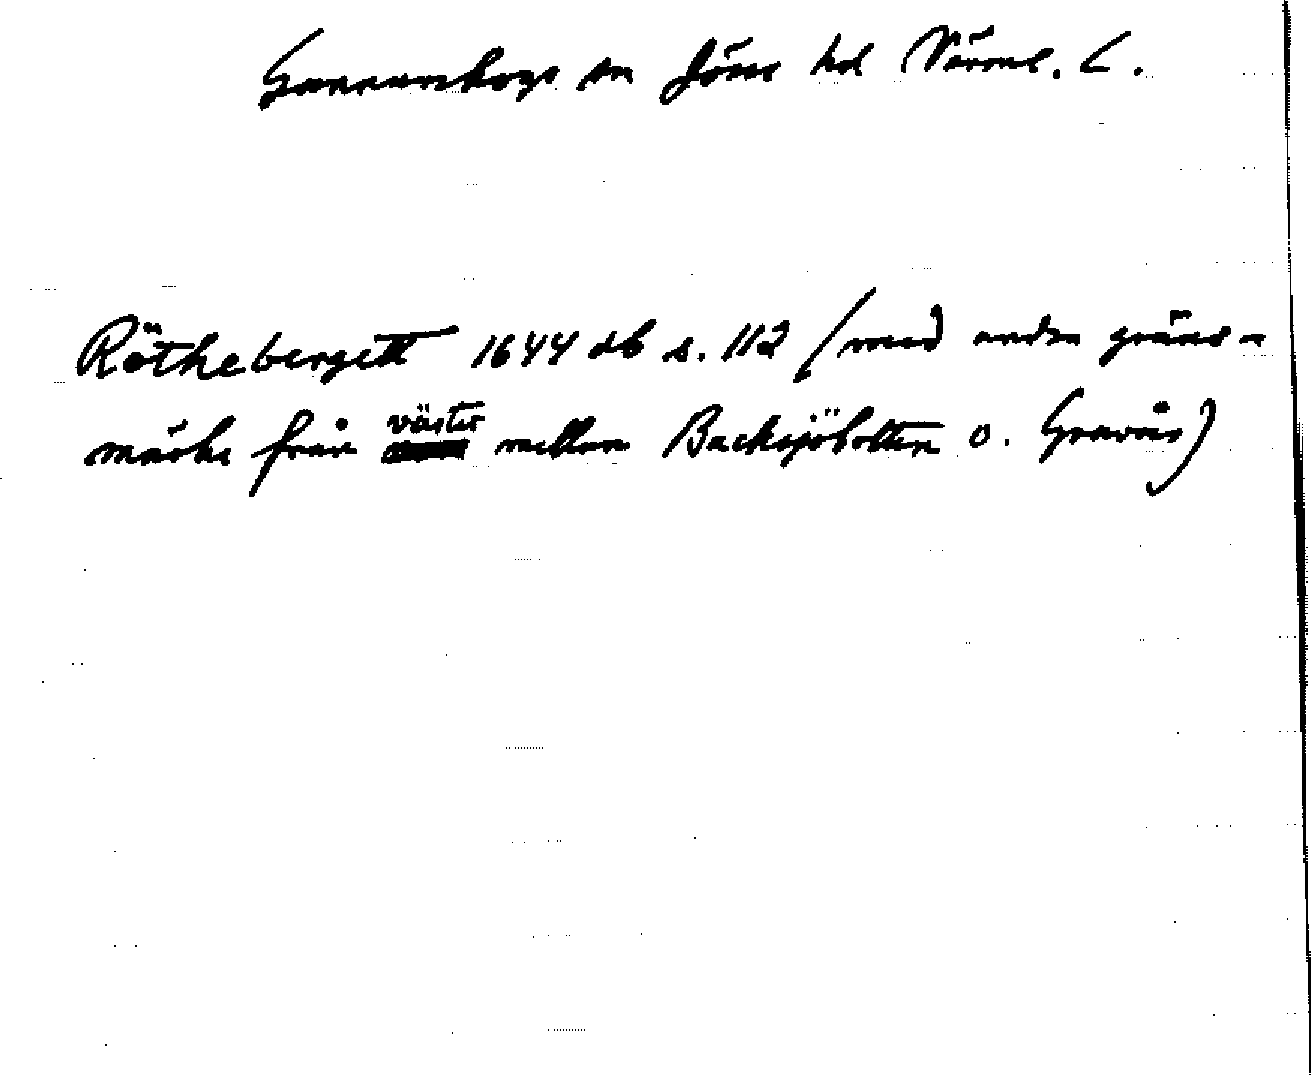 Gunnarskogs sn Jöss hd Värml. L.
Röthebergett 1644 db s. 112 (med andra gräns-
märke från väster mellan Backsjöbotten o. Gravås)